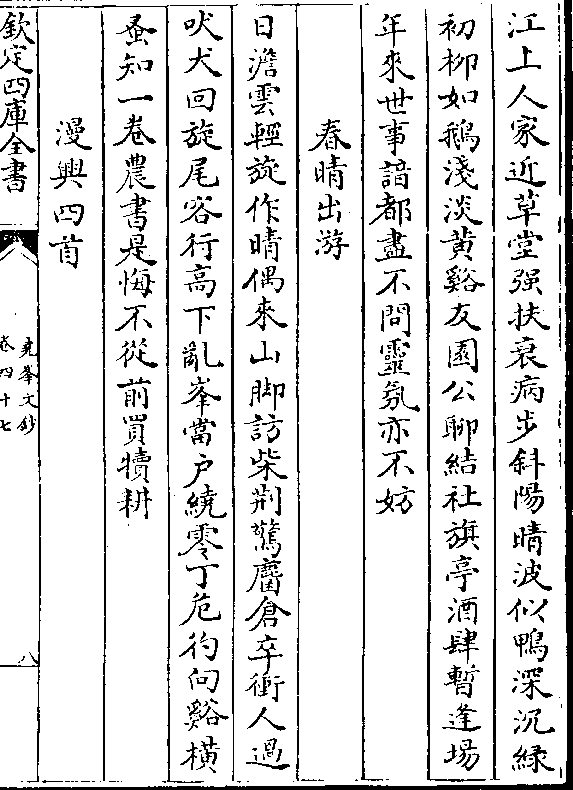 江上人家近草堂强扶衰病步斜陽晴波似鴨深沉緑
初柳如鵝淺淡黄谿友園公聊結社旗亭酒肆暫逢場
年來世事諳都盡不問靈氛亦不妨
春晴出游
日澹雲輕旋作晴偶來山脚訪柴荆驚麕倉卒衝人過
吠犬回旋尾客行高下亂峯當户繞零丁危彴向谿橫
蚤知一卷農書是悔不從前買犢耕
漫興四首
欽定四庫全書
堯峯文鈔
卷四十七
八